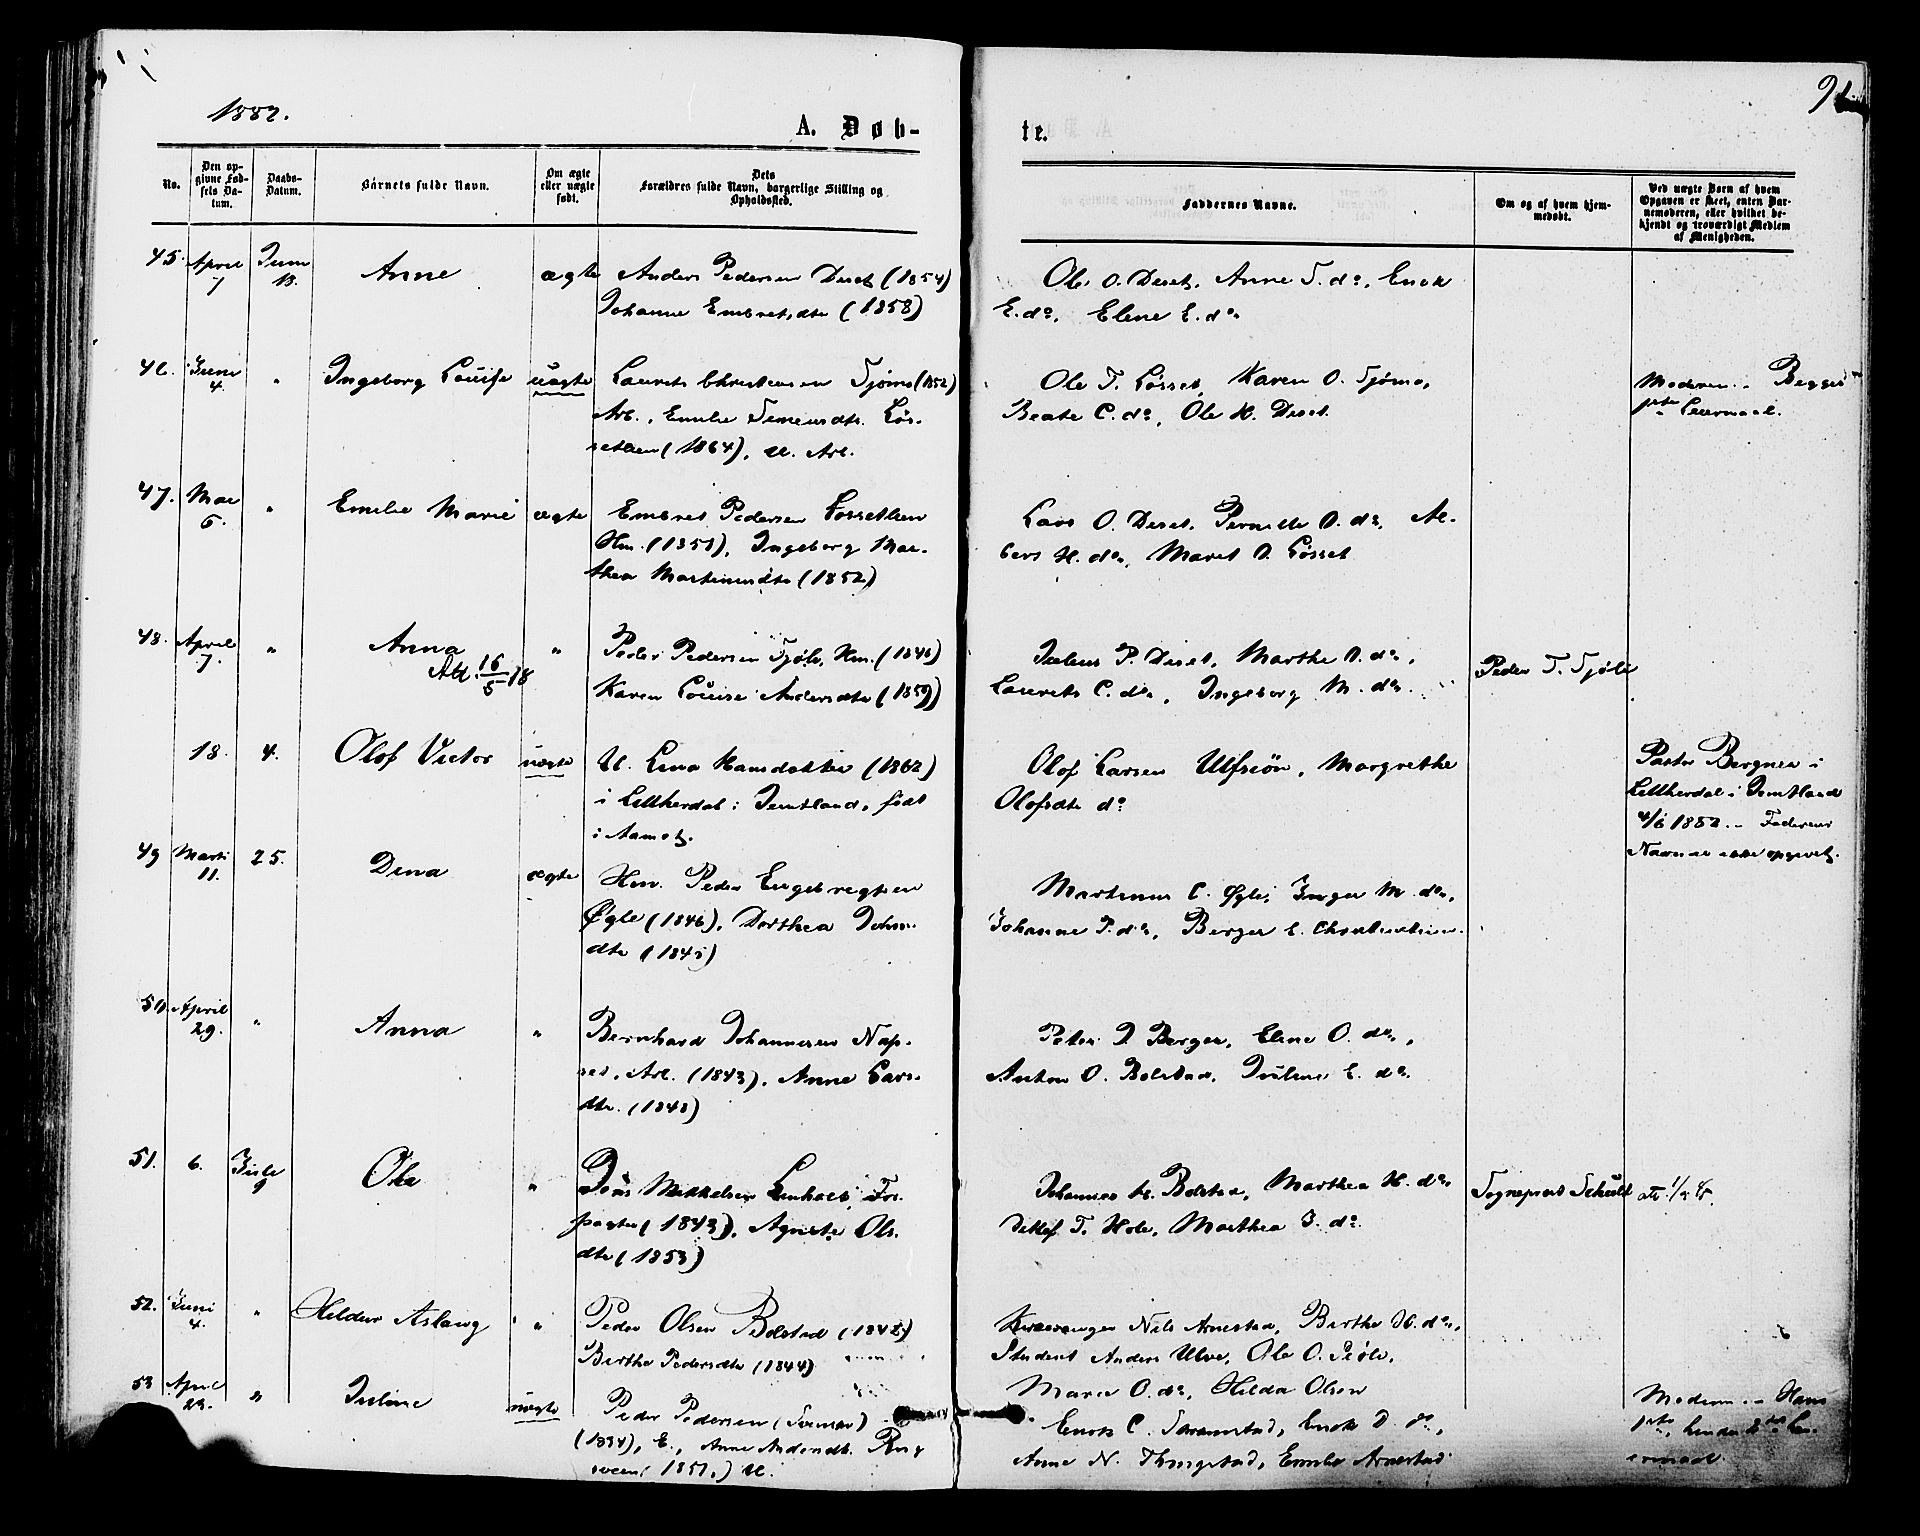 1882.
A. Døb-
te.
No.
Den op-
givne Fød-
sels Da-
tum.
Daabs-
Datum.
Barnets fulde Navn.
Om ægte
eller uægte
født.
Dets
Forældres fulde Navn, borgerlige Stilling og
Opholdssted.
Faddernes Navne.
Om og af hvem hjem-
medøbt.
Ved uægte Børn af hvem
Opgaven er skeet, enten Bar-
nemoderen, eller hvilket be-
kjendt og troværdigt Medlem
af Menigheden.
45. April 7 Juni 18. Anne ægte Anders Pedersen Deset (1854)
Johanne Embretsdtr (1858)
Ole O. Deset, Anne T. do, Enok
E. do, Elene E. do
46. Juni 4. " Ingeborg Louise uægte Laurits Christensen Tjørne (1852)
Arb., Emilie Simensdtr. Løs-
setsen (1864), U. Arb.
Ole T. Løsset, Karen O. Tjørne,
Beate C. do, Ole H. Deset.
Moderen. - Begges
1ste Leiermaal.
47. Mai 6. " Emilie Marie ægte Embret Pedersen Løssetsen
Hm. (1851), Ingeborg Mar-
thea Martinusdtr (1852)
Lars O. Deset, Pernille O. do, Al-
bert H. do, Maret O. Løsset
48. April 7. " Anna " Peder Pedersen Tjøle, Hm. (1846)
16/5 18
Karen Louise Andersdtr (1859)
Julius P. Deset, Marthe O. do,
Laurits C. do, Ingeborg M. do
Peder T. Tjøle
18. 4. Olof Victor uægte U. Lena Hansdatter (1862)
i Lillherdal i Jemtland, født
i Aamot.
Olof Larsen Ulfsiön, Margrethe
Olofsdtr do
Pastor Bergner i
Lillherdal i Jemtland
4/6 1882. - Faderens
Navn er ikke opgivet.
49 Marts 11. 25. Dina ægte Hm. Peder Engebregtsen
Øgle (1846), Dorthea Johns-
dtr (1845)
Martinus C. Øgle, Inger M. do,
Johanne P. do, Berger E. Christensen.
50. April 29. " Anna " Bernhard Johannesen Nap-
set, Arb. (1843), Anne Lars-
dtr. (1848)
Peter J Berger, Eline O. do,
Anton O. Bolstad, Juline E. do
51. 6. Juli 9 Ole " Jens Mikkelsen For-
pagter (1843), Agnete Ols-
dtr (1853)
Johannes H. Bolstad, Marthea H. do
Detlef T. Hole, Marthea J. do
Sogneprest Schult
52. Juni 4. " Hildur Aslaug " Peder Olsen Bolstad (1842)
Birthe Pedersdtr (1844)
Nils Arnestad, Birthe H. do,
Student Anders Ulve, Ole O.
Marie O. do, Hilda Olsen
53 April 23. " Juline uægte Peder Pedersen
(1894), E., Anne
(1851.) U.
Enok C. Enok
Anne N. Thingstad, Emilie Arnestad
Moderen. - Hans
1ste, hendes 2det Lei-
ermaal.